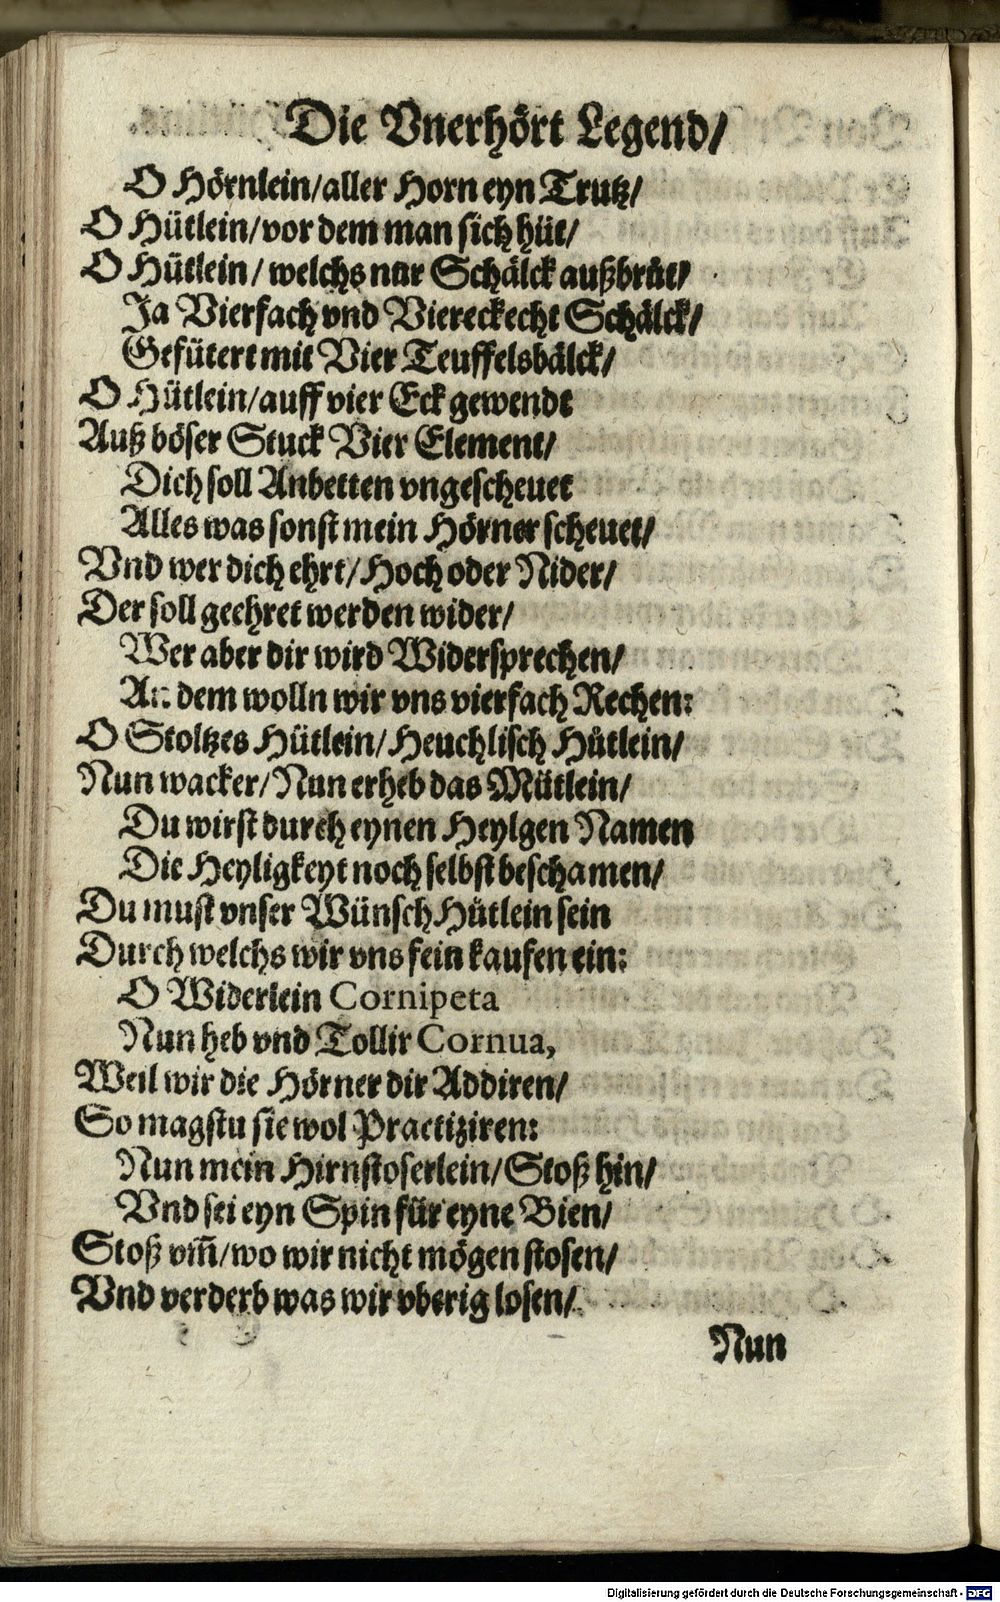 Die Vnerhört Legend/
O Hörnlein/aller Horn eyn Trutz/
O Hütlein/vor dem man sich hüt/
O Hütlein/ welchs nur Schälck außbrüt/
Ja Vierfach vnd Viereckecht Schälck/
Gefütert mit Vier Teuffelsbälck/
O Hütlein/auff vier Eck gewendt
Auß böser Stuck Vier Element/
Dich soll Anbetten vngescheuet
Alles was sonst mein Hörner scheuet/
Vnd wer dich ehrt/Hoch oder Nider/
Der soll geehret werden wider/
Wer aber dir wird Widersprechen/
An dem wolln wir vns vierfach Rechen:
O Stoltzes Hütlein/Heuchlisch Hütlein/
Nun wacker/Nun erheb das Mütlein/
Du wirst durch eynen Heylgen Namen
Die Heyligkeyt noch selbst beschamen/
Du must vnser Wünsch Hütlein sein
Durch welchs wir vns fein kaufen ein:
O Widerlein Cornipeta
Nun heb vnd Tollir Cornua,
Weil wir die Hörner dir Addiren/
So magstu sie wol Practiziren:
Nun mein Hirnstoserlein/Stoß hin/
Vnd sei eyn Spin für eyne Bien/
Stoß vm̅/wo wir nicht mögen stosen/
Vnd verderb was wir vberig losen/
Nun
Digitalisierung gefördert durch die Deutsche Forschungsgemeinschaft - DFG